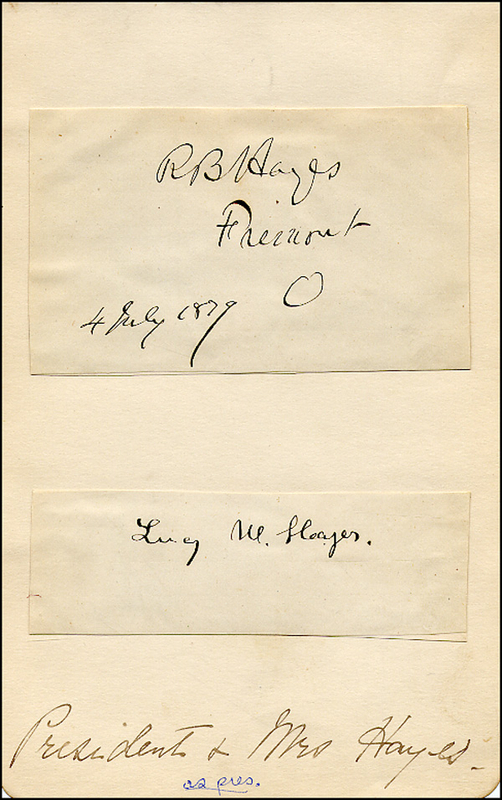 R B Hayes
Fremont
O
4 July 1879
Lucy W. Hayes.
President & Mrs Hayes.
as pres.